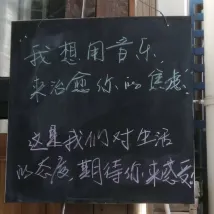 我想用音乐
来治愈你的焦虑
这是我们对生活
的态度期待你来感受